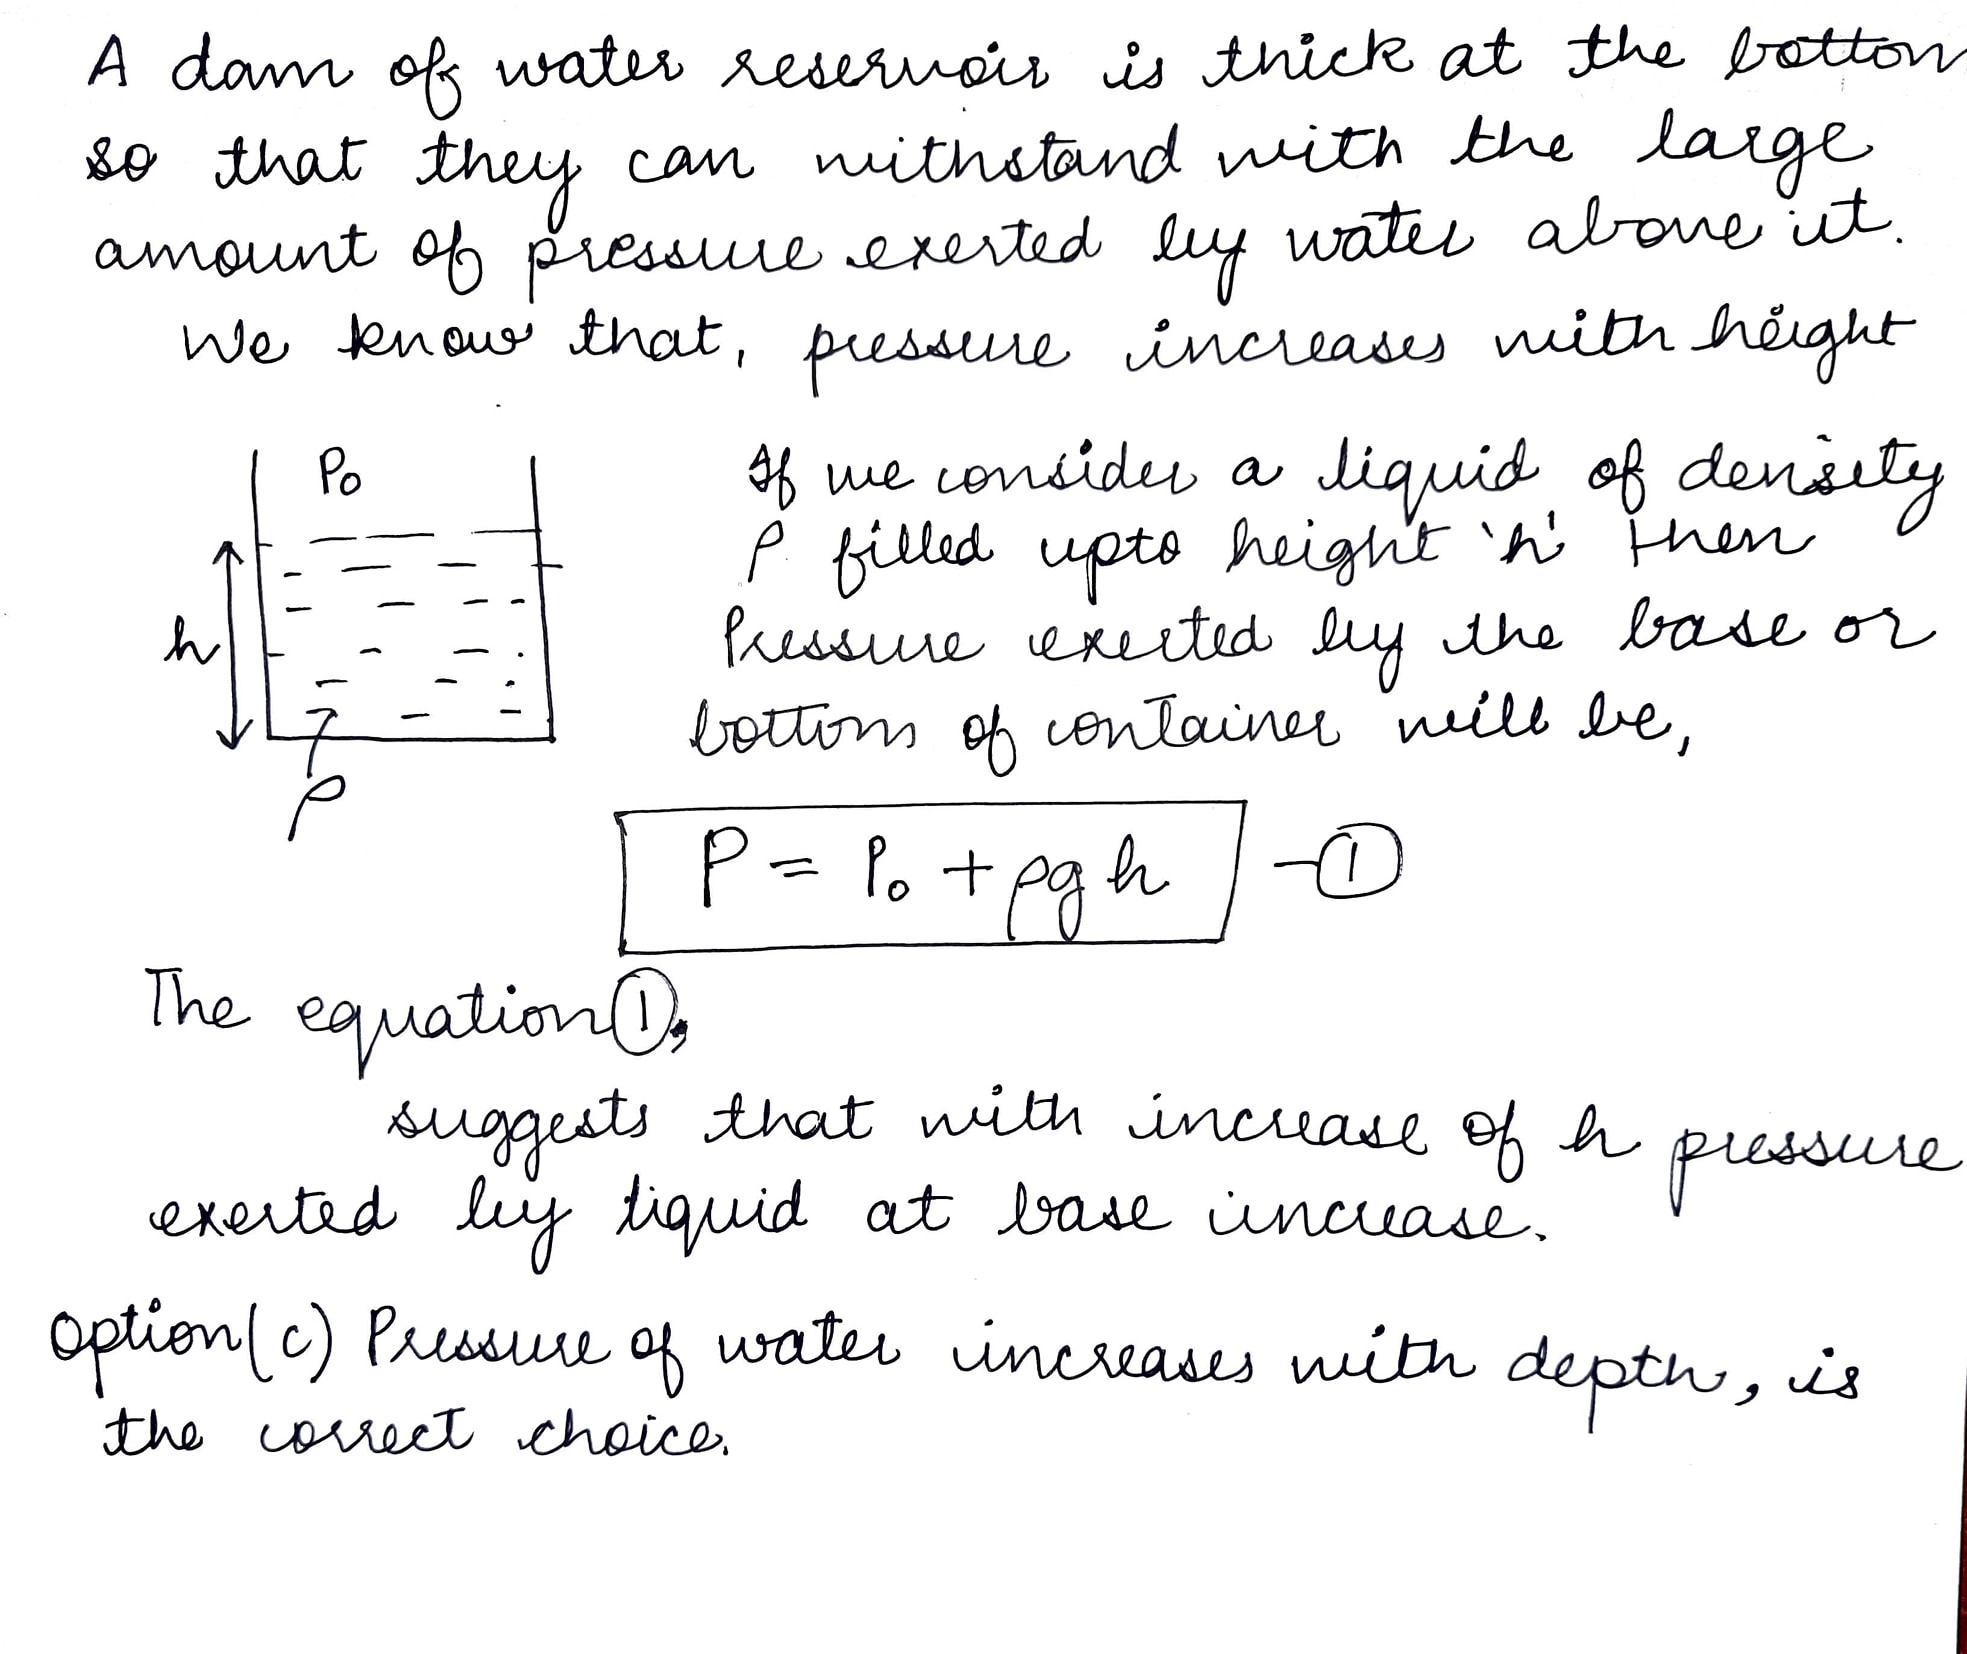 A dam of water reservoir is thick at the bottom
so that they can withstand with the large
amount of pressure exerted by water above it.
We know that, pressure increases with height
P₀
h
ρ
If we consider a liquid of density
ρ filled upto height 'h' then
Pressure exerted by the base or
bottom of container will be,
P = P₀ + ρgh -①
The equation ①,
suggests that with increase of h pressure
exerted by liquid at base increase.
option(c) Pressure of water increases with depth, is
the correct choice.